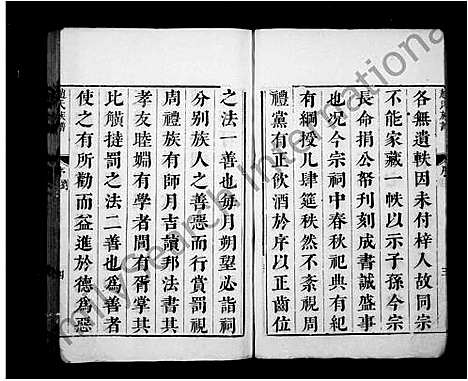 各無遺軼因未付梓人故同宗
不能家藏一帙以示子孫今宗
長命捐公帑刊刻成書誠盛事
也兄今宗祠中春秋祀典有紀
有綱授几肆筵秩然不紊視周
禮黨正飲酒於序以正齒位
之法一善也每月朔望必詣祠
分別族人之善惡而行賞罰視
周禮族有師月吉讀邦法書其
孝友睦婣有學者閭有胥掌其
比觥撻罰之法二善也為善者
使之有所勸而益進於德為惡
趙氏族譜
四
三
FamilySearch International